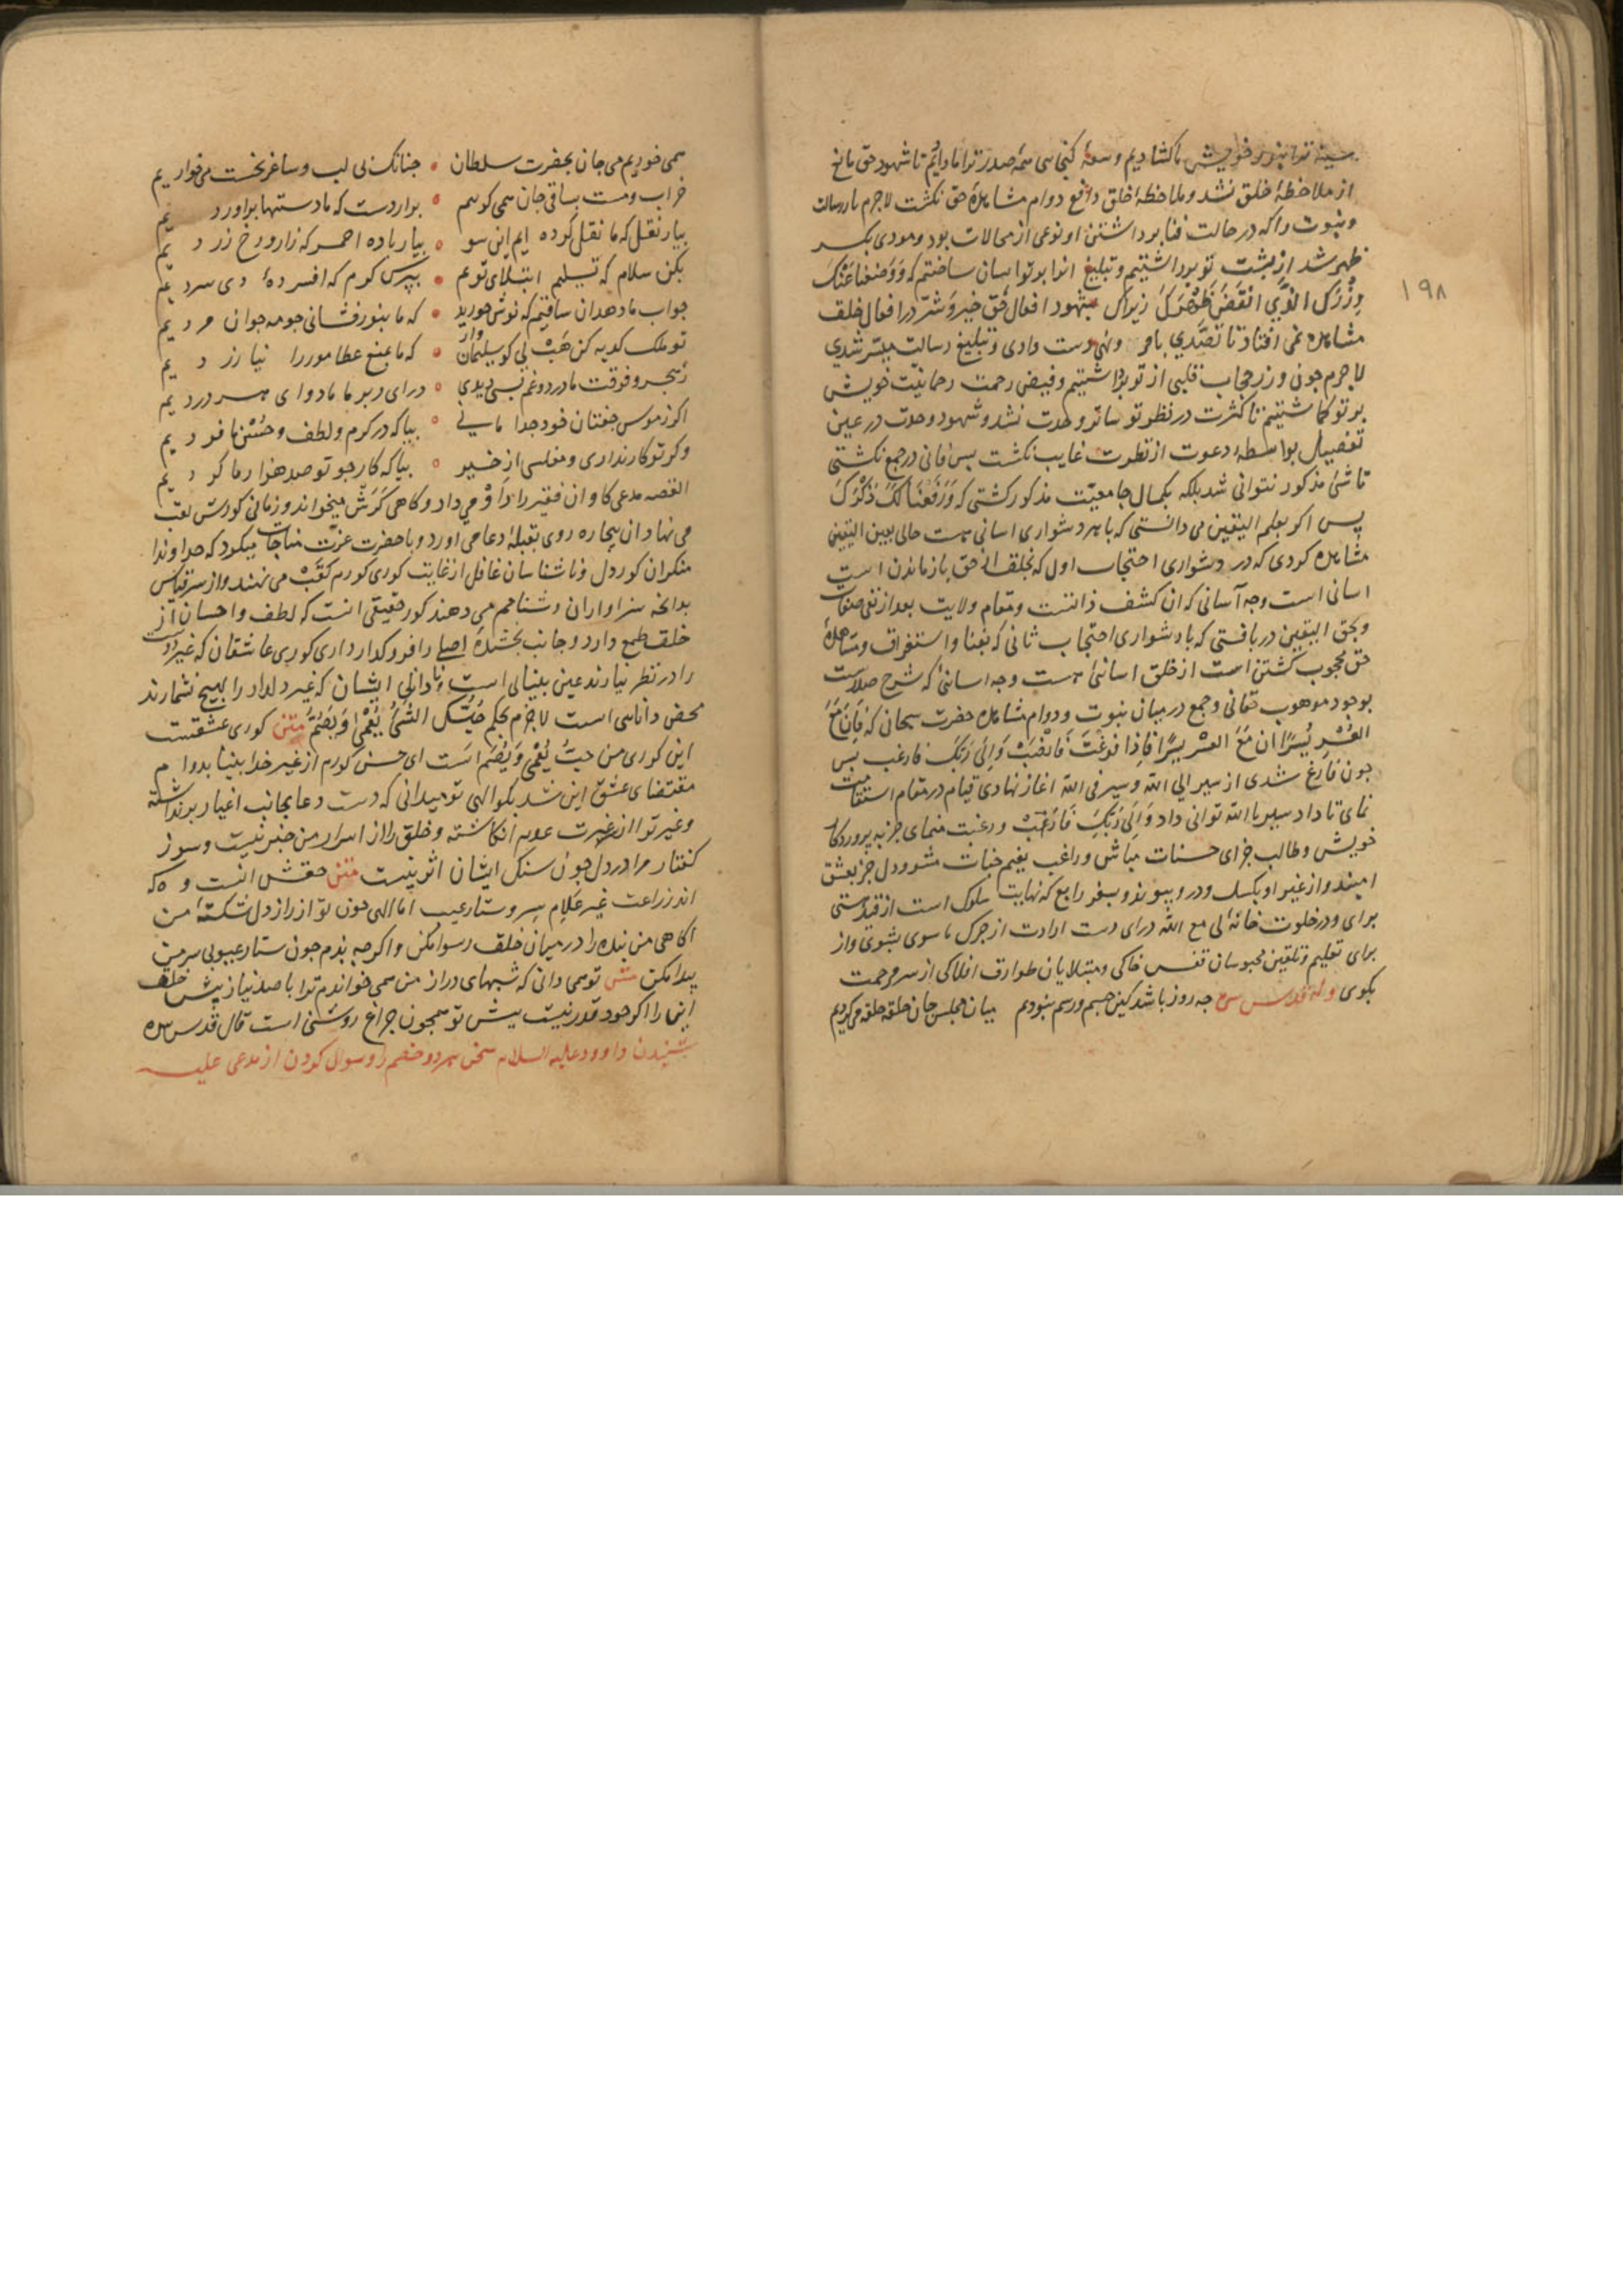 سینهٔ ترا بنور خویش بکشادیم وسعهٔ کنجی سی سهٔ صدر ترا ما دایم تا شهود حق مانع
از ملاحظهٔ خلق نشد و ملاحظهٔ خلق دافع دوام مشاهدهٔ حق نکشت لاجرم بار رسالت
ونبوت را که در حالت فنا برداشتن او نوعی از محالات بود و مودی بکسر
ظهر شد از پشت تو برداشتیم و تبلیغ انرا بر تو اسان ساختیم که وَوَضَعنا عَنْکَ
وِزْرَکَ الَّذِي انْقَضَ ظَهْرَكَ زیراکه بشهود افعال حق خیر و شر در افعال خلق
مشاهده نمی افتاد تا تصدّی بامر و نهی دست دادی و تبلیغ رسالت میسر شدی
لاجرم چون وزر حجاب قلبی از تو برداشتیم و فیض رحمت رحمانیت خویش
بر تو کماشتیم تا کثرت در نظر تو ساتر وحدت نشد و شهود وحدت در عین
تفصیل بواسطهٔ دعوت از نظرت غایب نکشت پس فانی در جمع نکشتی
تا شئ مذکور نتوانی شد بلکه بکمال جامعیّت مذکور کشتی که وَرَفَعْنَا لَکَ ذِکْرَکَ
پس اکر بعلم الیقین می دانستی که با هر دشواری اسانی هست حالی بعین الیقین
مشاهده کردی که در دشواری احتجاب اول که بخلق از حق باز ماندن است
اسانی است وجه آسانی که ان کشف ذاتست ومقام ولایت بعد از نفی صفات
وبحق الیقین دریافتی که با دشواری احتجاب ثانی که بفنا و استغراق ومشاهدهٔ
حق محجوب کشتن است از خلق اسانئ هست وجه اسانئ که شرح صدرست
بوجود موهوب حقانی و جمع در میان نبوت و دوام مشاهده حضرت سبحانی که فَاِنَّ مَعَ
العُسْرِ یُسْرًا ان مَعَ العسْر یسرًا فَاِذا فرغْتَ فَانْصَبْ وَاِلَی رَبِّکَ فارغب پس
چون فارغ شدی از سیر الی الله و سیر فی الله اغاز نهادی قیام در مقام استقامت
نمای تا داد سیر بالله توانی داد وَاِلَی رَبِّکَ فَارْغَبْ ورغبت منمای جز به پروردکار
خویش وطالب جزای حسنات مباش وراغب بنعیم جنات مشو و دل جز بعشق
او مبند و از غیر او بکسل ودر و پیوند و سفر رابع که نهایت سلوک است از قید هستی
برای ودر خلوت خانهٔ لی مع الله درای دست ارادت از چرک ما سوی بشوی واز
برای تعلیم وتلقین محبوسان قفس خاکی ومبتلایان طوارق افلاکی از سر مرحمت
بکوی وله قدس سره چه روز باشد کین جسم ورسم بنودیم میان مجلس جان حلقه حلقه می کردیم
۱۹۸
همی خوریم می جان بحضرت سلطان • چنانک بی لب و ساغر نخست می خواریم
خراب و مست بساقی جان همی کوییم • برار دست که ما دستها براوردیم
بیار نقل که ما نقل کرده ایم این سو • بیار باده احمر که زار و رخ زردیم
بکن سلام که تسلیم ابتلای توئم • بپرس کرم که افسردهٔ دی سردیم
جواب ما دهد ان ساقیم که نوش خورید • که ما بنور فشانی چو مه جوانمردیم
تو ملک کدیه کن هَبْ لی کو سلیمان وار • که ما بمنع عطا مور را نیازردیم
ز هجر و فرقت ما درد و غم بسی دیدی • درای در بر ما ما دوای هر دردیم
اکر ز مونس جفتان خود جدا مانی • بیا که در کرم و لطف و حسن ما فردیم
وکر تو کار نداری و مفلسی از خیر • بیا که کار چو تو صد هزار ما کردیم
القصه مدعی کاو ان فقیر را داو می داد و کاهی کرش میخواند و زمانی کورش لقب
می نهاد ان بیچاره روی بقبلهٔ دعا می اورد و با حضرت عزّت مناجات میکرد که خداوندا
منکران کور دل و ناشناسان غافل از غایت کوری کورم لقب می نهند و از سر قیاس
بدانچه سزاوار ان دشنامم می دهند کور حقیقی انست که لطف و احسان از
خلق طمع دارد و جانب بخشندهٔ اصلی را فرو کدارد اری کوری عاشقان که غیر دوست
را در نظر نیارند عین بینایی است و نادانی ایشان که غیر دلدار را بهیچ نشمارند
محض دانایی است لاجرم بحکم حُبُّکَ الشَّیَٔ یُعْمِی وَیُصِمُّ متن کوری عشقست
این کوری من حبّ یُعْمی وَیُصِم است ای حسن کورم از غیر خدا بینا بدو ام
مقتضای عشق این شد بکو الهی تو میدانی که دست دعا بجانب اغیار برنداشته
وغیر ترا از غیرت عدم انکاشته و خلق را از اسرار من خبر نیست و سوز
کفتار مرا در دل چون سنک ایشان اثر نیست متن حقش انست و که
اند زراعت غیر علام سر و ستار عیب اما الهی چون تو از راز دل شکستهٔ من
اکاهی من بنده را در میان خلق رسوا مکن و اکرچه بدم چون ستار عیبوبی سر من
پیدا مکن متن تو همی دانی که شبهای دراز من همی خواندم ترا با صد نیاز پیش خلق
این را اکر خود قدر نیست پیش تو همچون چراغ روشنی است قال قدس سره
شنیدن داوود علیه السلام سخن هر دو خصم را وسوال کردن از مدعی علیه